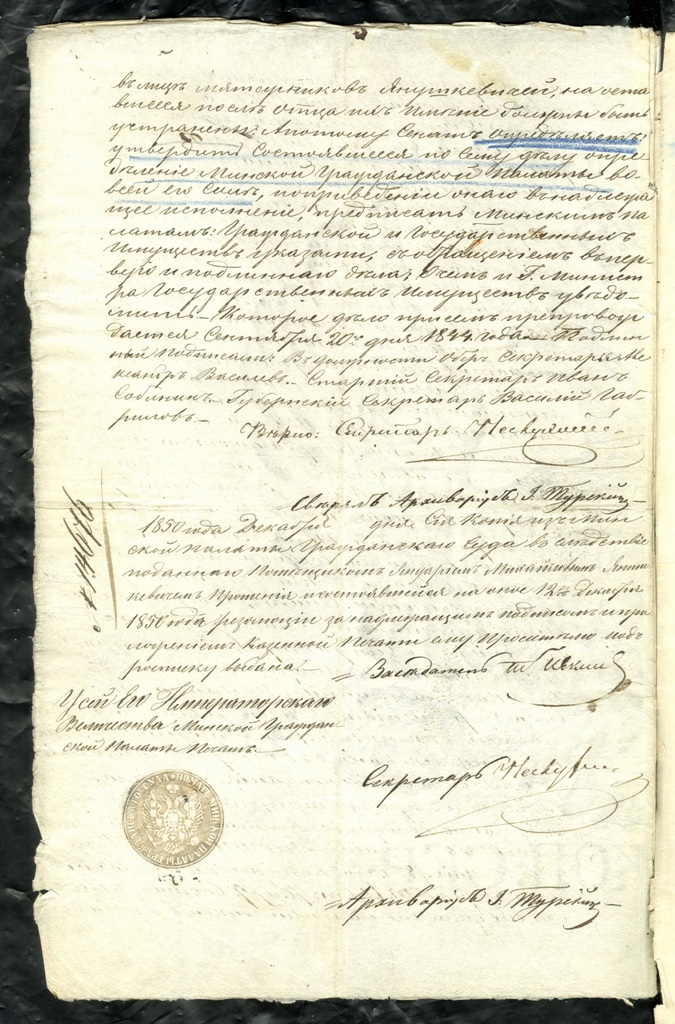 въ лицѣ мятежниковъ Янушкевичей, на оста
вшееся послѣ отца ихъ имѣніе должны быть
устранены. А потому Сенатъ опредѣляетъ:
утвердить состоявшееся по сему дѣлу опре
дѣленіе Минской Гражданской Палаты во
всей его силѣ, о приведеніи онаго въ надлежа
щее исполненіе, предписать Минскимъ па
латамъ: Гражданской и Государственныхъ
Имуществъ указами, съ обращеніемъ въ пер
вую и подлиннаго дѣла; о чемъ и Г. Минист
ра Государственныхъ Имуществъ увѣдо
мить. Которое дѣло при семъ препровож
дается Сентября 20го дня 1844 года. Подлин
ный подписали: Въ должности Оберъ Секретаря Але
ксандръ Василевъ. Старшій Секретарь Иванъ
Губернскій Секретарь Василій Гав
риловъ.
Вѣрно: Секретарь
Свѣрялъ Архиваріусъ І. Турскій
1850 года Декабря дня Сія копія изъ Мин
ской Палаты Гражданскаго Суда въ слѣдствіе
поданнаго Помѣщикомъ Михайловымъ Януш
кевичемъ Прошенія и состоявшейся на оное 12го Декабря
1850 года резолюціи за надлежащимъ подписомъ и при
ложеніемъ Казенной Печати ему Просителю подъ
росписку выдана.
Засѣдатель
У сей Его Императорскаго
Величества Минской Граждан
ской Палаты Печать.
Секретарь
ПЕЧАТЬ МИНСКОЙ ПАЛАТЫ ГРАЖДАНСКАГО СУДА
Архиваріусъ І. Турскій